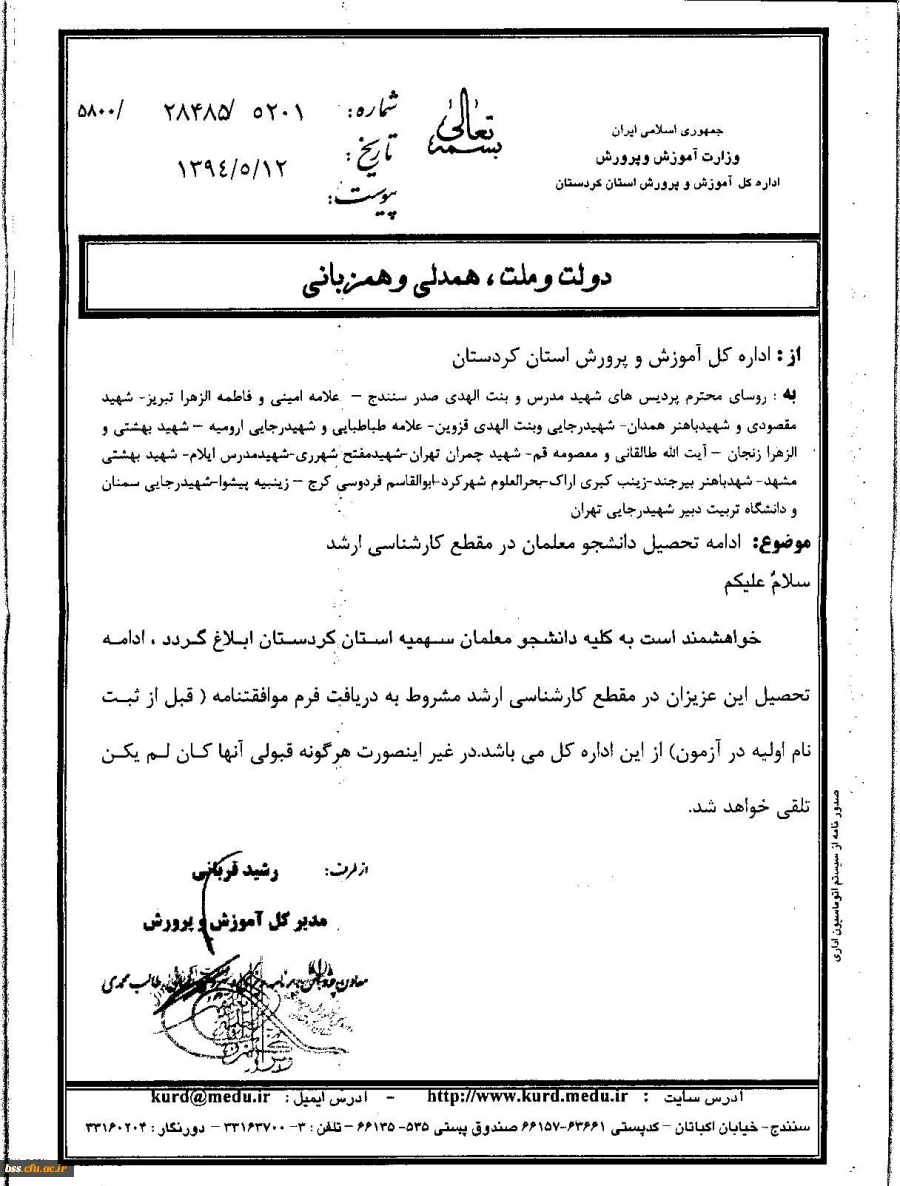 بسمه تعالی
جمهوری اسلامی ایران
وزارت آموزش وپرورش
اداره کل آموزش و پرورش استان کردستان
شماره: ۵۲۰۱ /۲۸۴۸۵ /۵۸۰۰
تاریخ: ۱۳۹٤/۵/۱۲
پیوست:
دولت و ملت ، همدلی و همزبانی
از : اداره کل آموزش و پرورش استان کردستان
به : روسای محترم پردیس های شهید مدرس و بنت الهدی صدر سنندج – علامه امینی و فاطمه الزهرا تبریز- شهید
مقصودی و شهیدباهنر همدان- شهیدرجایی وبنت الهدی قزوین- علامه طباطبایی و شهیدرجایی ارومیه – شهید بهشتی و
الزهرا زنجان – آیت الله طالقانی و معصومه قم- شهید چمران تهران-شهیدمفتح شهرری-شهیدمدرس ایلام- شهید بهشتی
مشهد- شهدباهنر بیرجند-زینب کبری اراک-بحرالعلوم شهرکرد-ابوالقاسم فردوسی کرج – زینبیه پیشوا-شهیدرجایی سمنان
و دانشگاه تربیت دبیر شهیدرجایی تهران
موضوع: ادامه تحصیل دانشجو معلمان در مقطع کارشناسی ارشد
سلامٌ علیکم
خواهشمند است به کلیه دانشجو معلمان سهمیه استان کردستان ابلاغ گردد ، ادامه
تحصیل این عزیزان در مقطع کارشناسی ارشد مشروط به دریافت فرم موافقتنامه ( قبل از ثبت
نام اولیه در آزمون) از این اداره کل می باشد.در غیر اینصورت هرگونه قبولی آنها کان لم یکن
تلقی خواهد شد.
از طرف: رشید قربانی
مدیر کل آموزش و پرورش
طالب محمدی
صدور نامه از سیستم اتوماسیون اداری
آدرس سایت : http://www.kurd.medu.ir – آدرس ایمیل : kurd@medu.ir
سنندج- خیابان اکباتان – کدپستی ۶۳۶۶۱-۶۶۱۵۷ صندوق پستی ۵۳۵- ۶۶۱۳۵ – تلفن : ۳- ۳۳۱۶۳۷۰۰ – دورنگار : ۳۳۱۶۰۲۰۴
bss.cfu.ac.ir